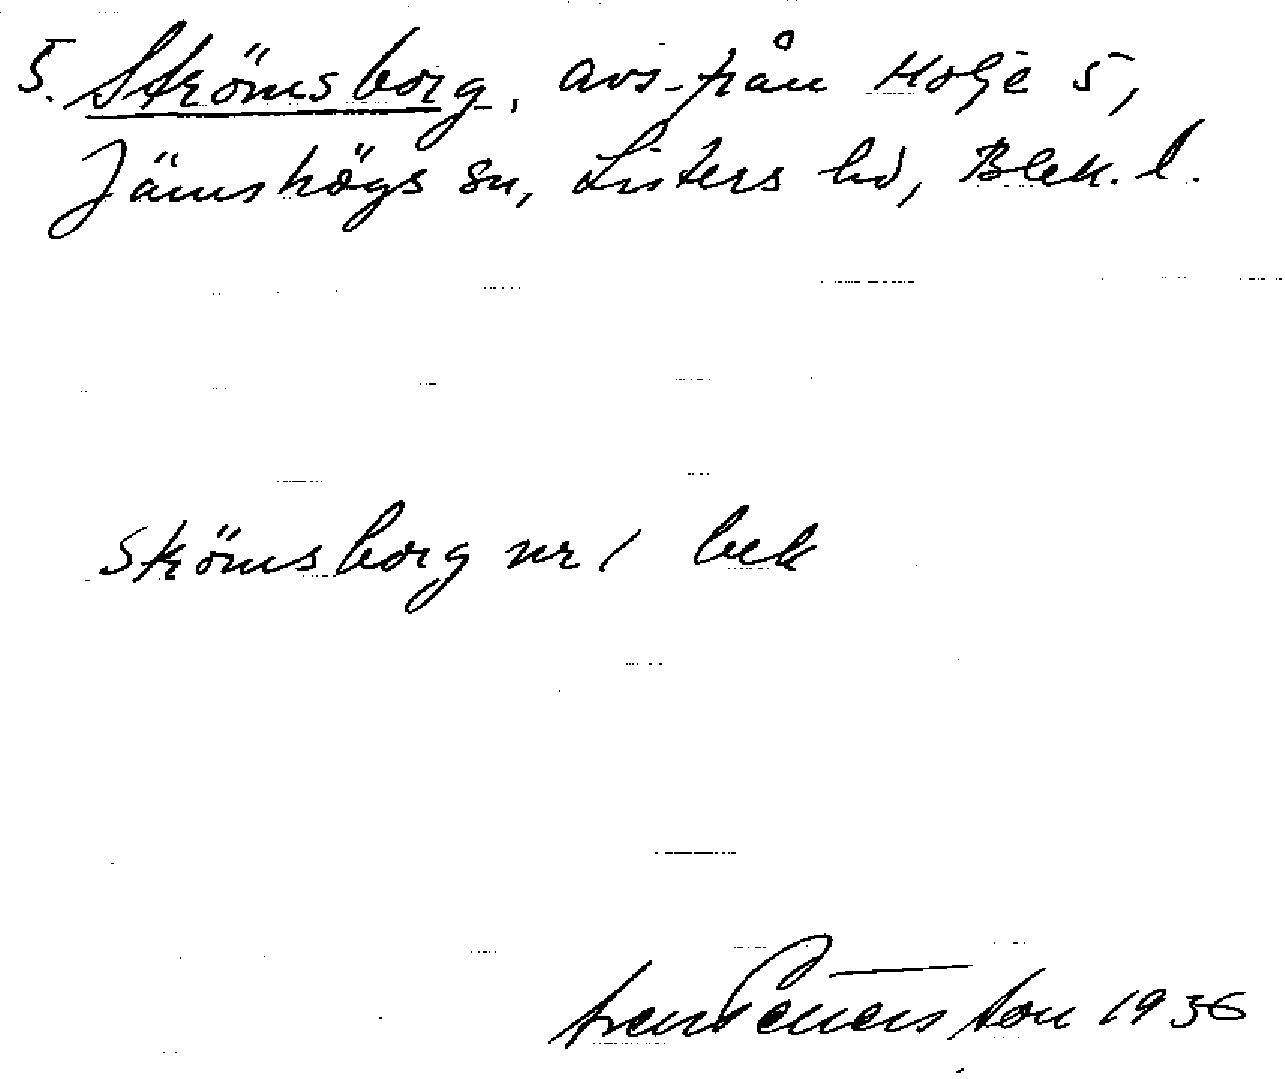 5. Strömsborg, avs. från Holje 5,
Jämshögs sn, Listers hd, Blek. l.
Strömsborg nr 1 bek
Sven Benson 1936